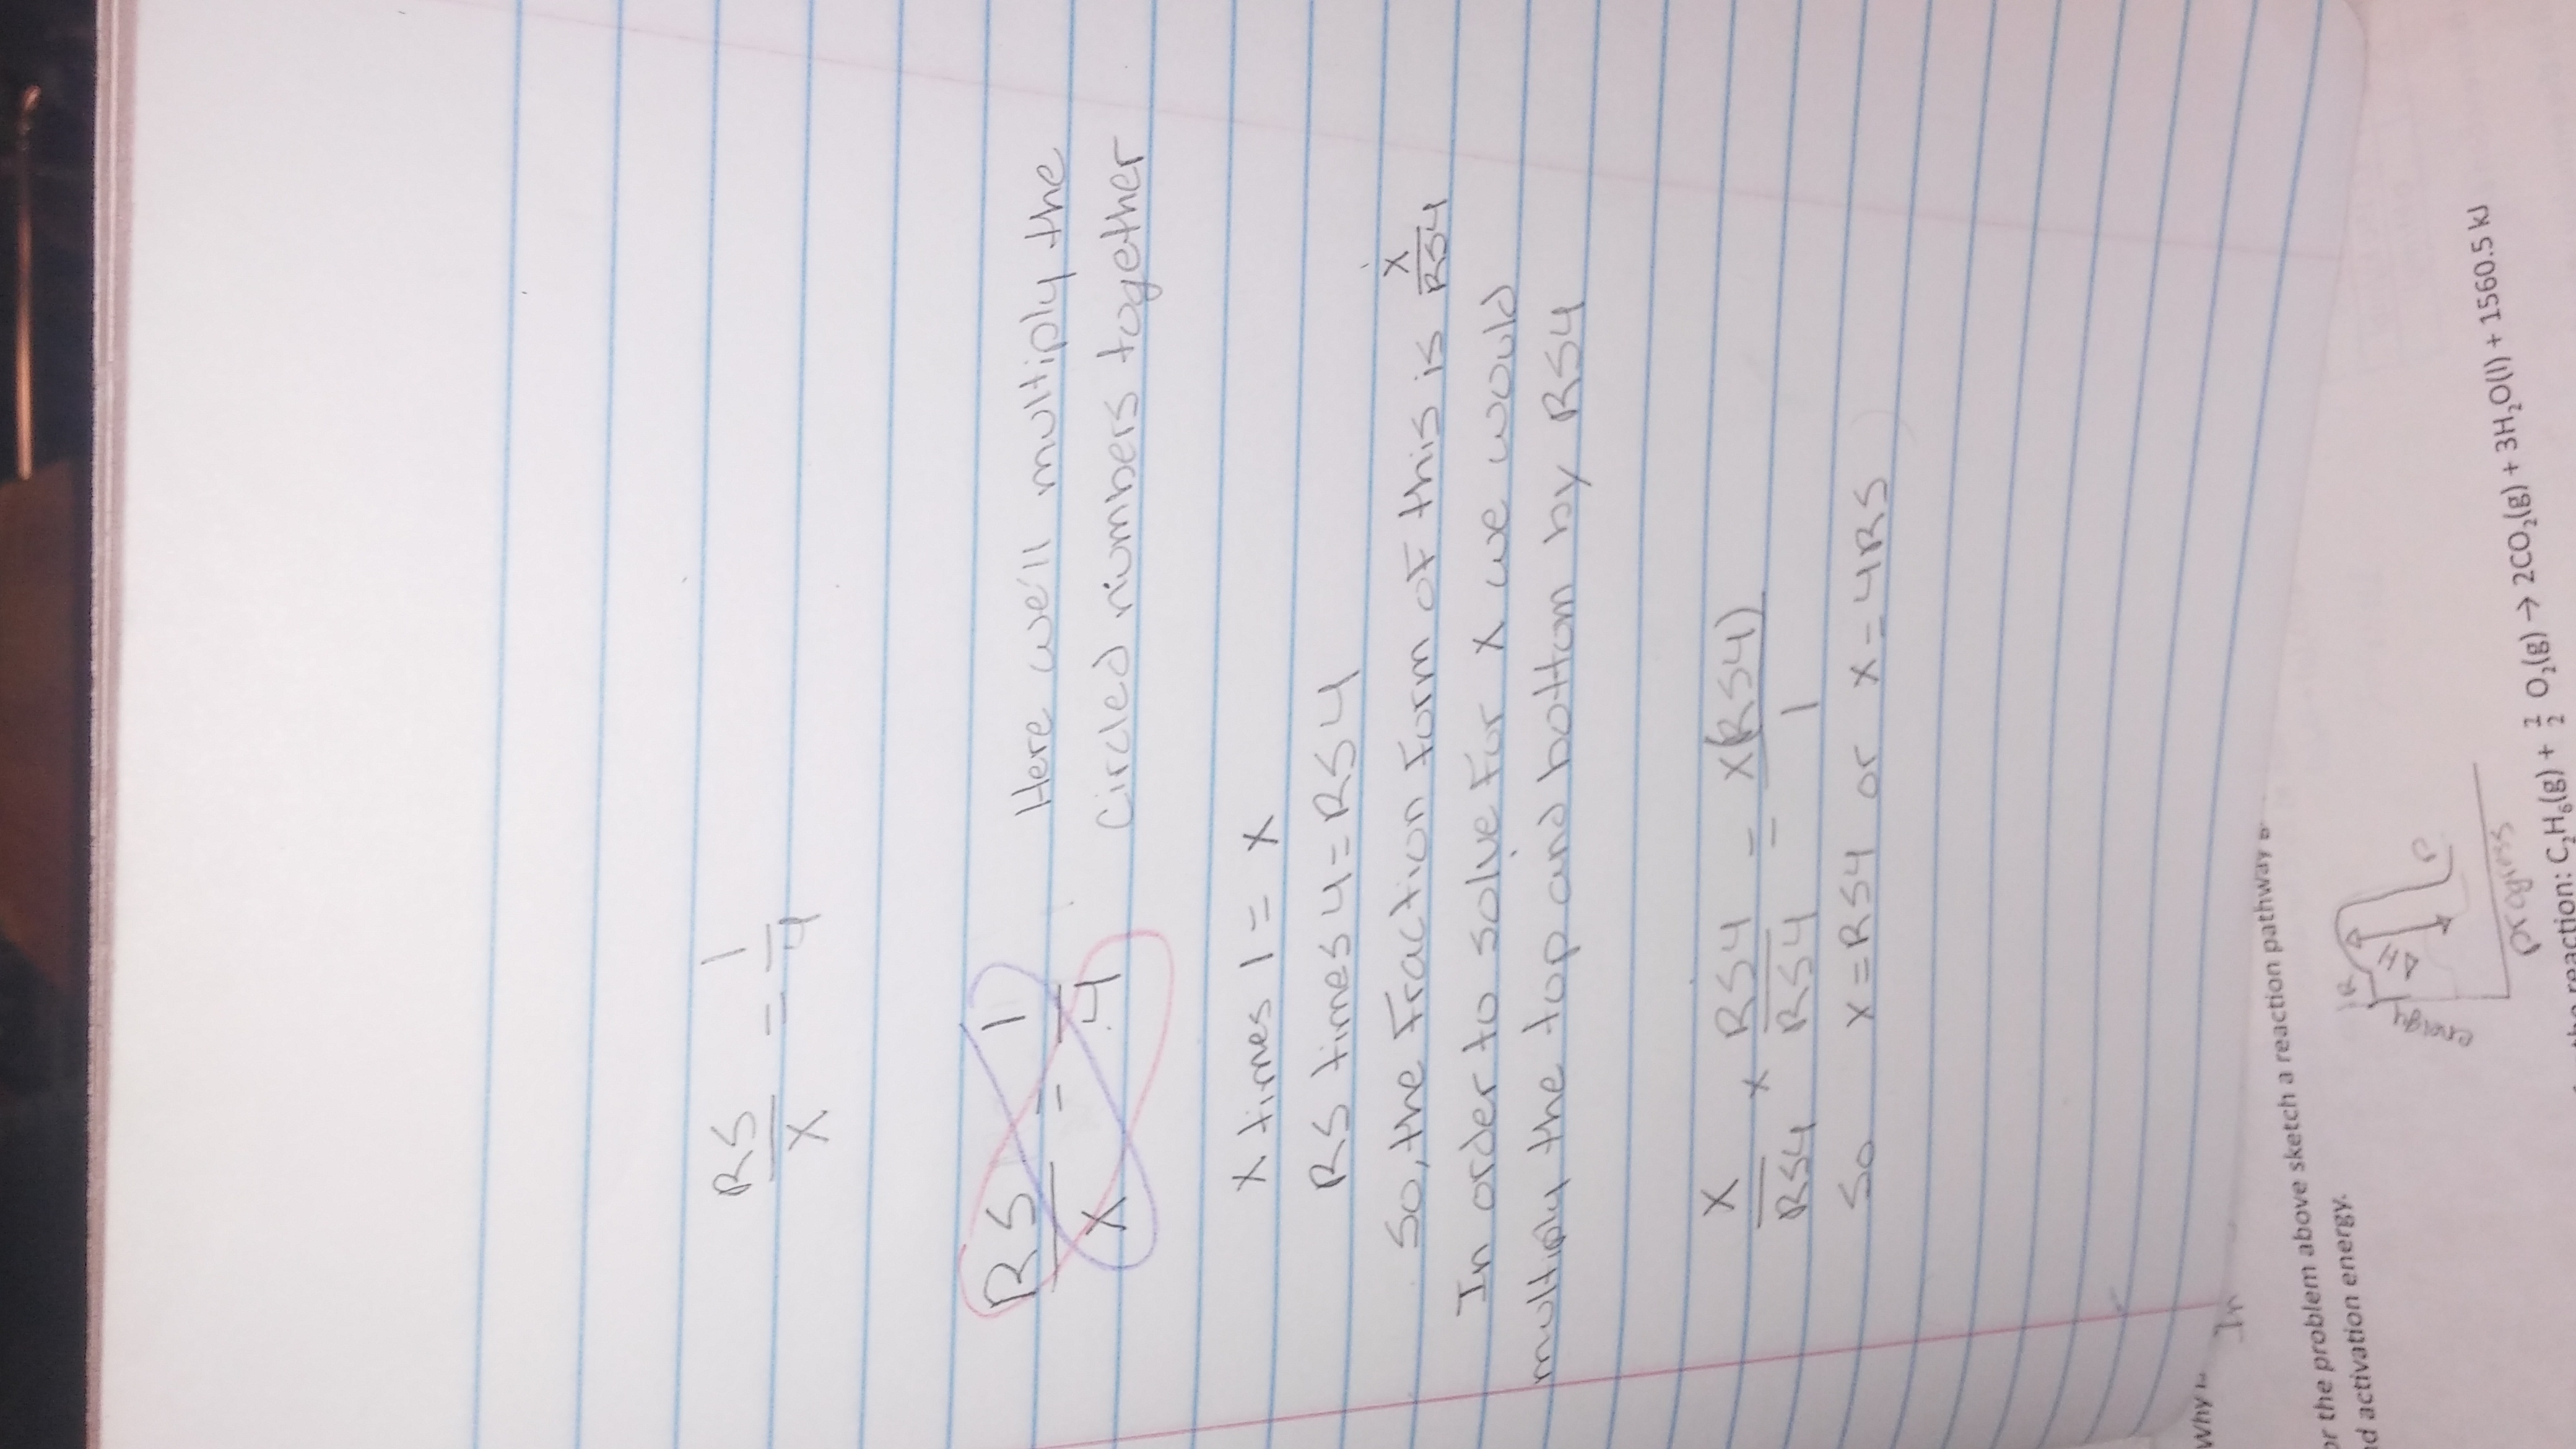 RS/X = 1/4
RS/X = 1/4 Here we'll multiply the
Circled numbers together
X times 1 = X
RS times 4 = RS4
So, the Fraction Form of this is X/RS4
In order to solve For X we would
multiply the top and bottom by RS4
X/RS4 x RS4/RS4 = X(RS4)/1
So X=RS4 or X=4RS
Why
In
or the problem above sketch a reaction pathway
d activation energy.
R
ΔH
P
progress
reaction: C₂H₆(g) + 7/2 O₂(g) → 2CO₂(g) + 3H₂O(l) + 1560.5 kJ